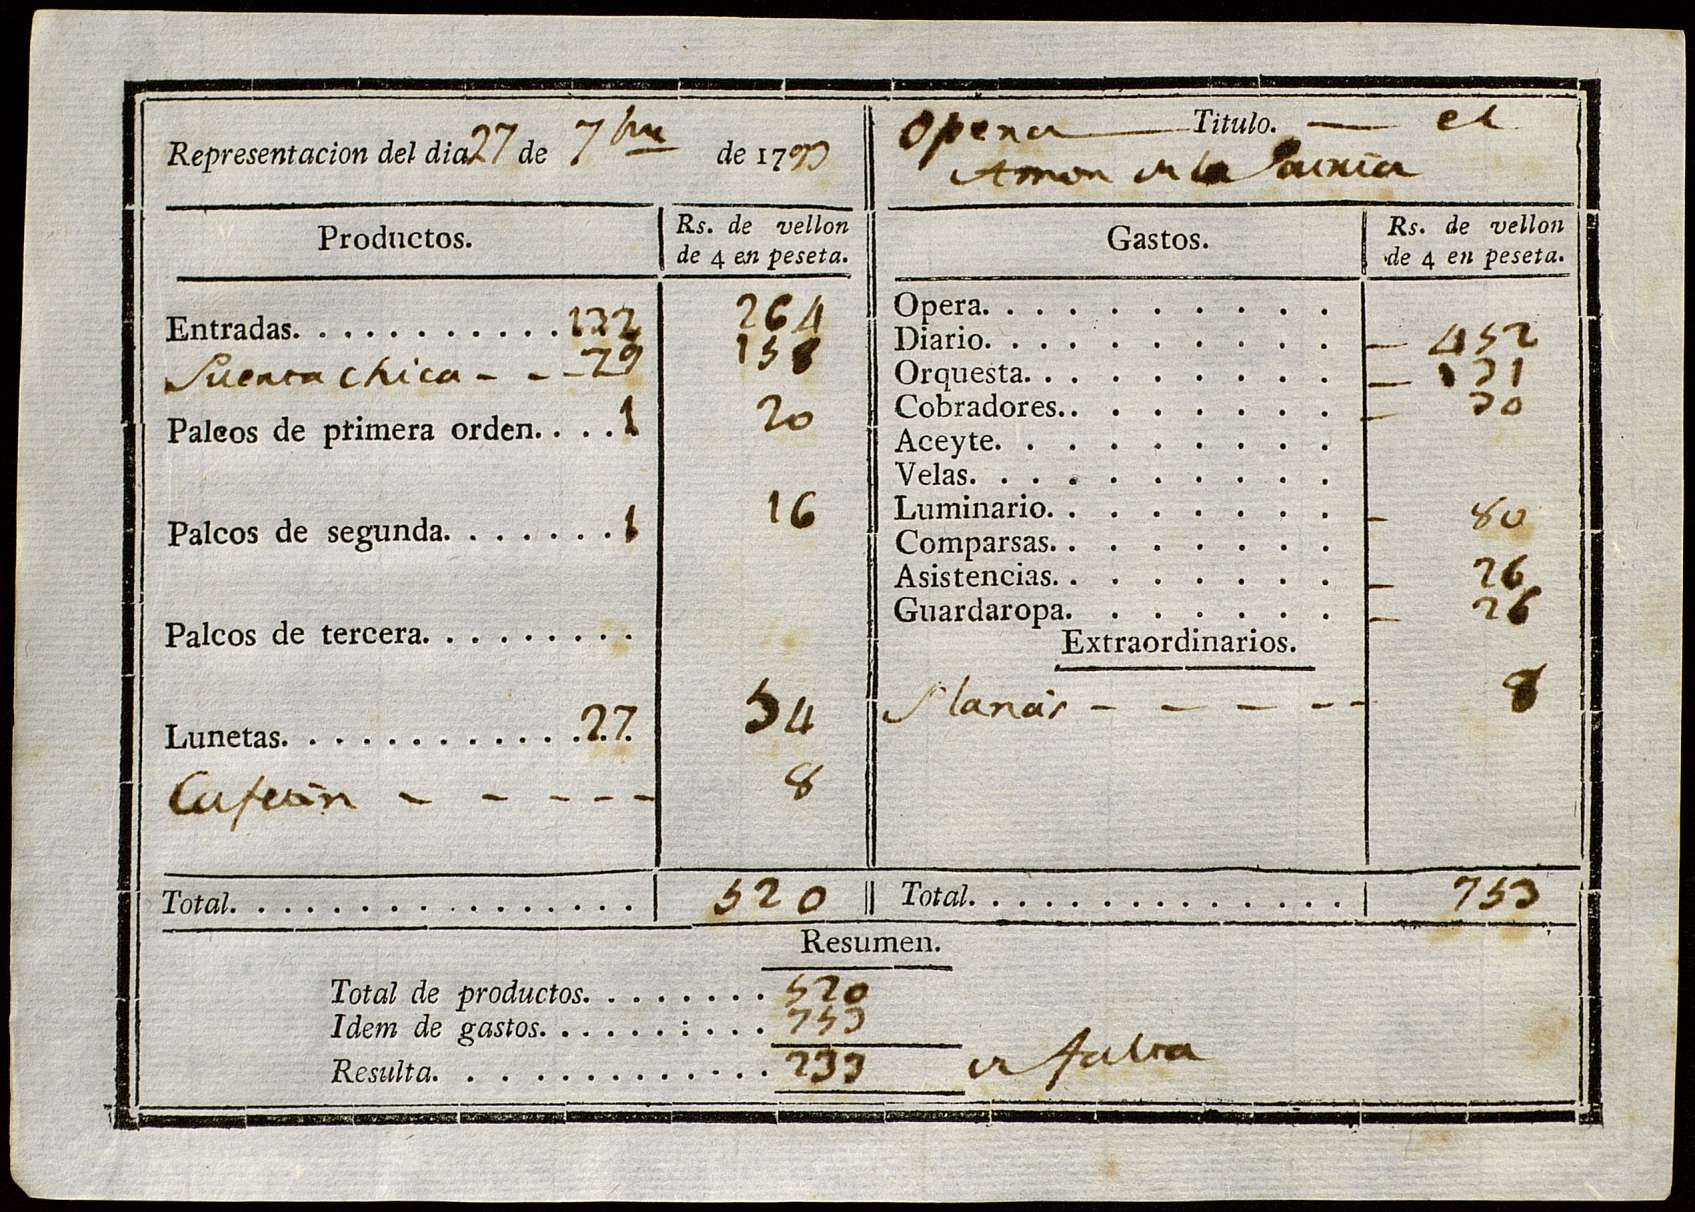 Representacion del dia 27 de 7bre de 1793
Productos. Rs. de vellon de 4 en peseta.
Entradas. . . . . . . . . . . 132 264
Puerta chica - - - 79 158
Palcos de primera orden. . . . 1 20
Palcos de segunda. . . . . . . 1 16
Palcos de tercera. . . . . . . . .
Lunetas. . . . . . . . . . . . . 27. 54
Cafetin - - - - - 8
Total. . . . . . . . . . . . . . . . . 520
Opera — Titulo. — el
Amor de la Patria
Gastos. Rs. de vellon de 4 en peseta.
Opera. . . . . . . . . .
Diario. . . . . . . . . . — 452
Orquesta. . . . . . . . . — 131
Cobradores. . . . . . . . — 30
Aceyte. . . . . . . . . .
Velas. . . . . . . . . . .
Luminario. . . . . . . . — 80
Comparsas. . . . . . . .
Asistencias. . . . . . . . — 26
Guardaropa. . . . . . . — 26
Extraordinarios.
Planas - - - - - 8
Total. . . . . . . . . . . . . . . . 753
Resumen.
Total de productos. . . . . . . . 520
Idem de gastos. . . . . . . . . . 753
Resulta. . . . . . . . . . . . . . 233 de falta